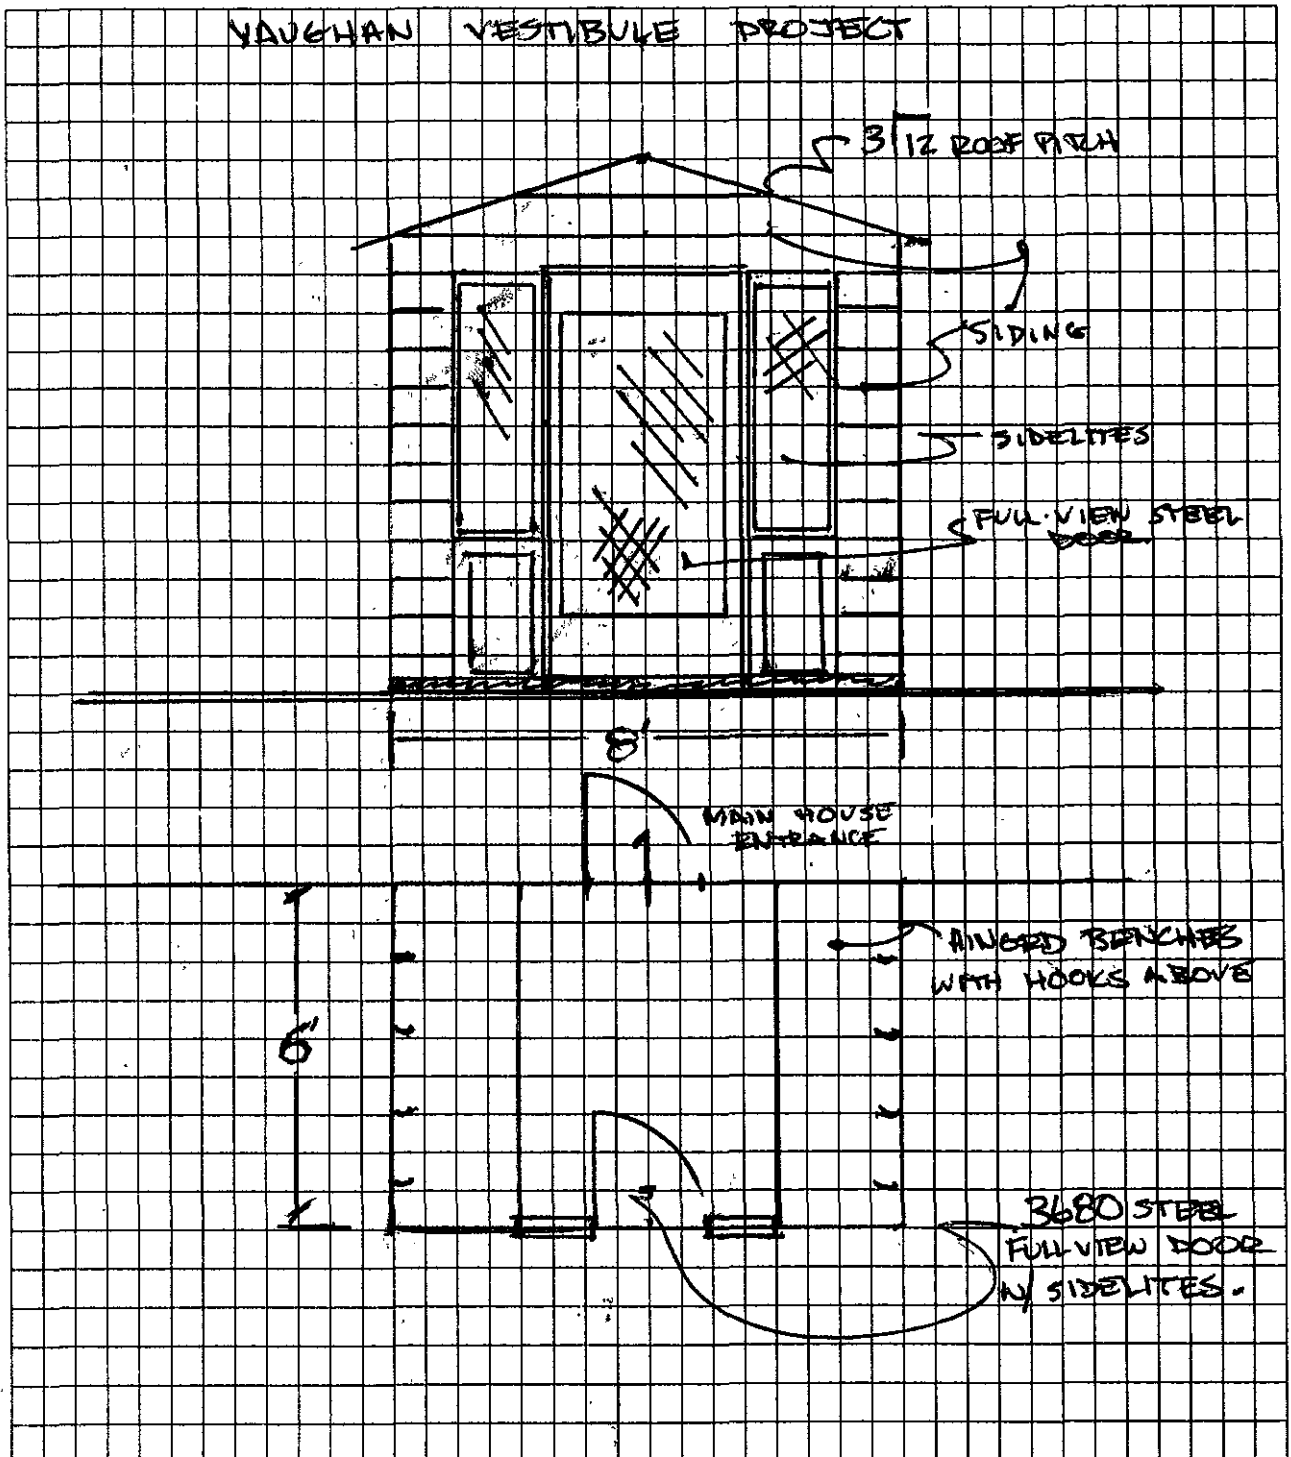 VAUGHAN VESTIBULE PROJECT
3/12 ROOF PITCH
SIDING
SIDELITES
FULL-VIEW STEEL
DOOR
8'
MAIN HOUSE
ENTRANCE
HINGED BENCHES
WITH HOOKS ABOVE
6'
3680 STEEL
FULL VIEW DOOR
W/ SIDELITES.